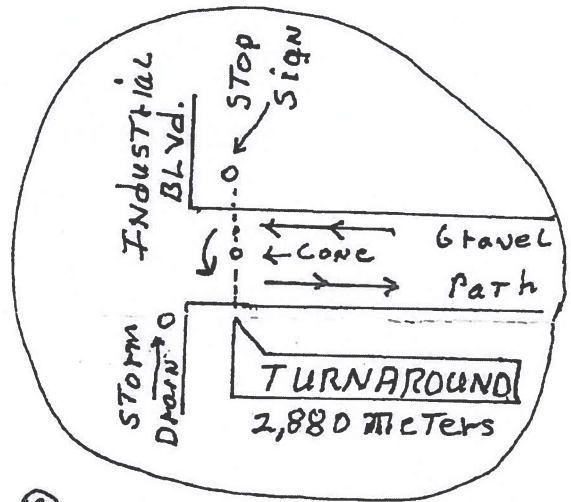 Industrial
Blvd.
Stop
Sign
Gravel
←Cone
Path
Storm
Drain
TURNAROUND
2,880 Meters